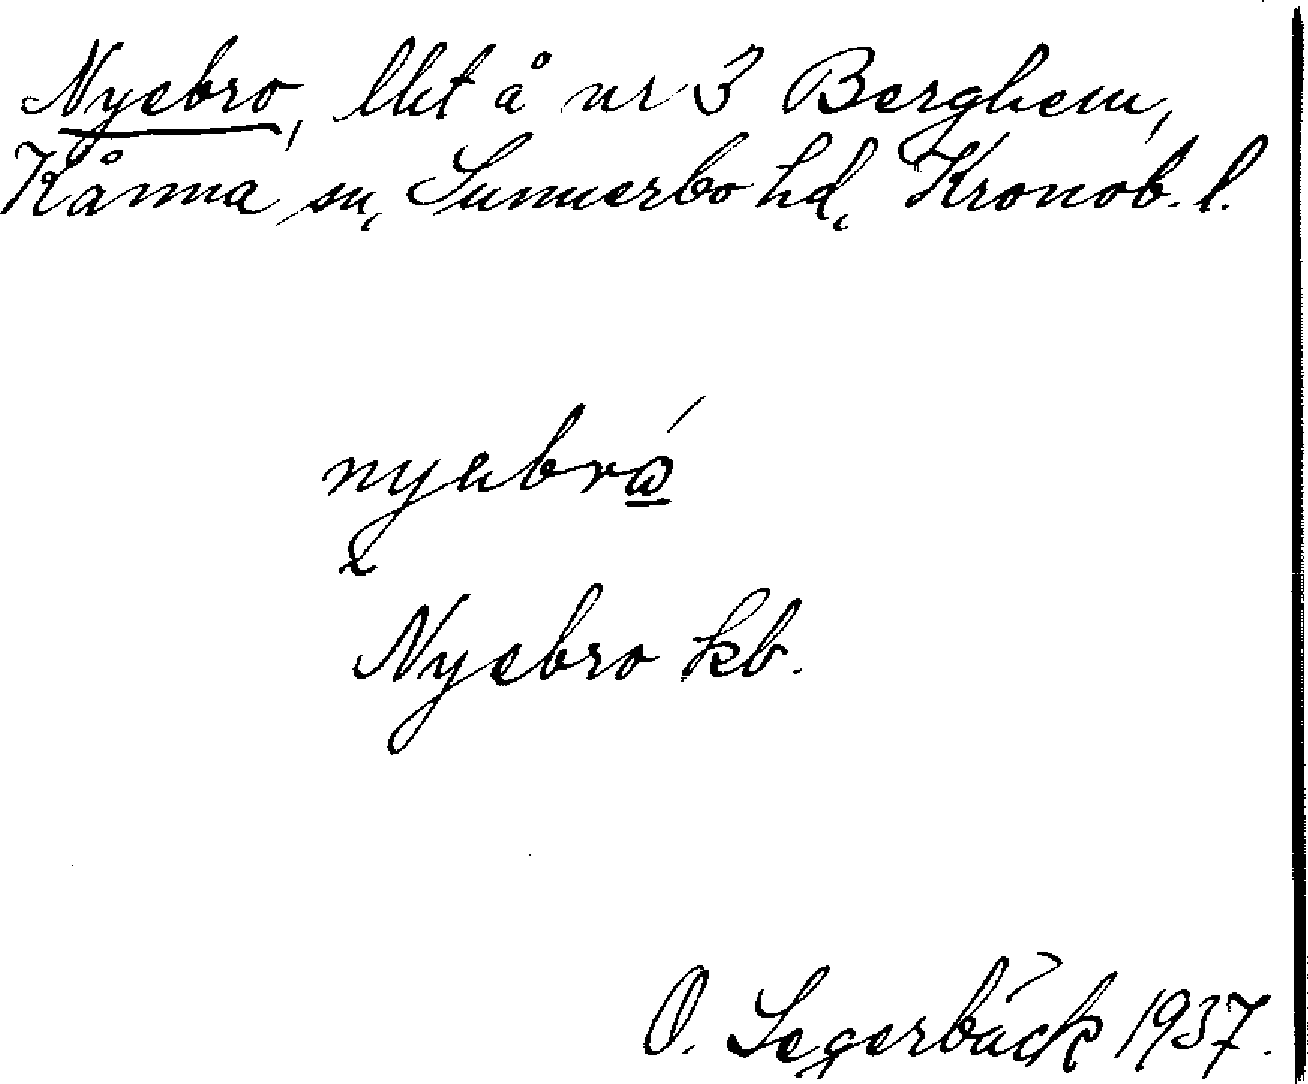 Nyebro, lht å nr 3 Berghem,
Kånna sn, Sunnerbo hd, Kronob. l.
Nyebro kb.
O. Segerbäck 1937.